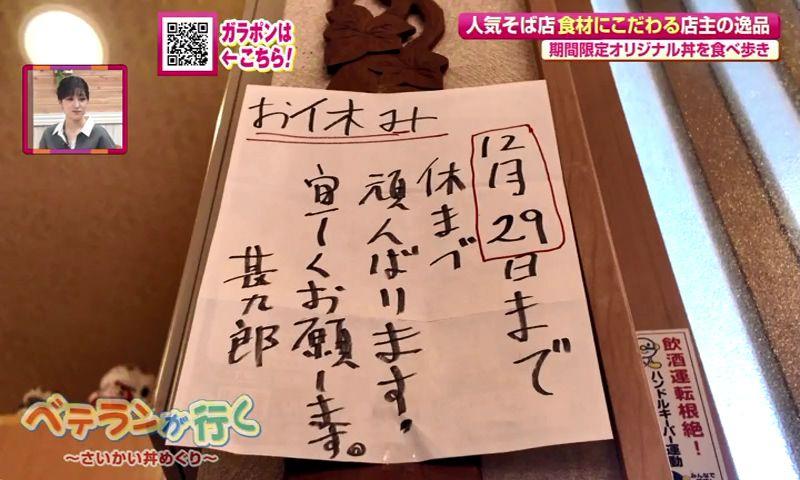 ガラポンは
←こちら!
人気そば店 食材にこだわる店主の逸品
期間限定オリジナル丼を食べ歩き
お休み
12月29日まで
休まず
頑んばります!
宜しくお願します。
甚九郎
飲酒運転根絶!
ハンドルキーパー運動
みんなで
ベテランが行く
～さいかい丼めぐり～